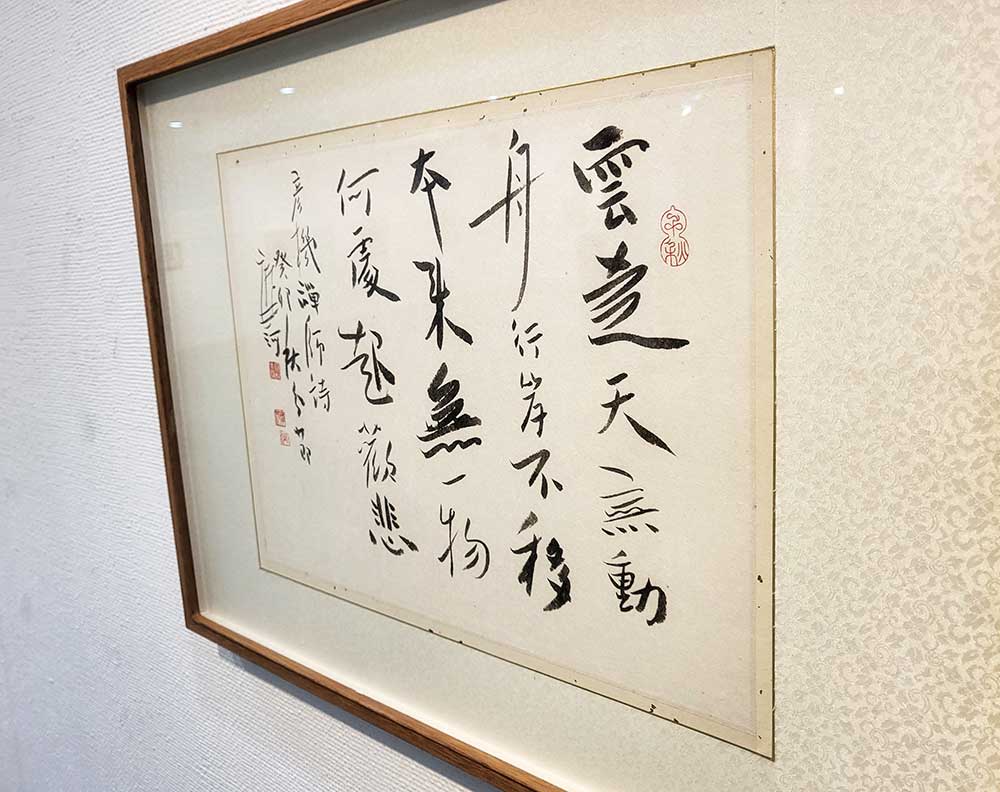 雲走天無動
舟行岸不移
本来無一物
何處起歡悲
彦機禪師詩
癸卯秋